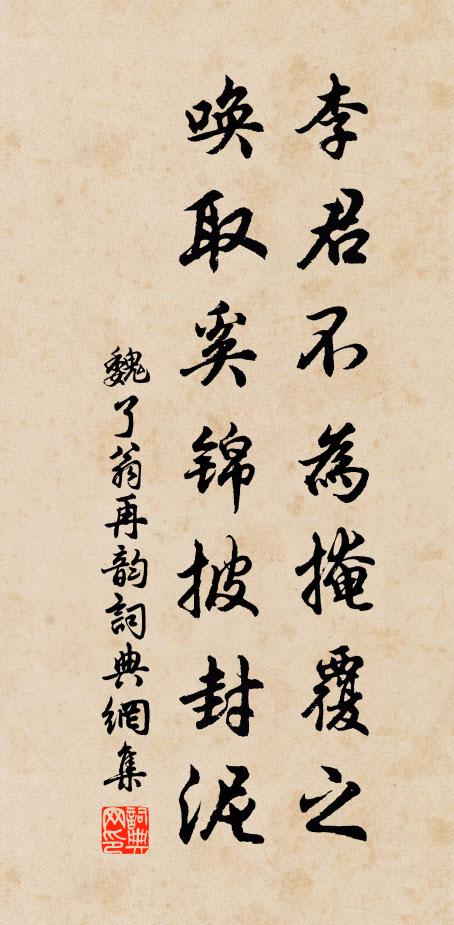 李君不為掩覆之
喚取奚錦披封泥
魏了翁再韵詞典網集
詞典網印